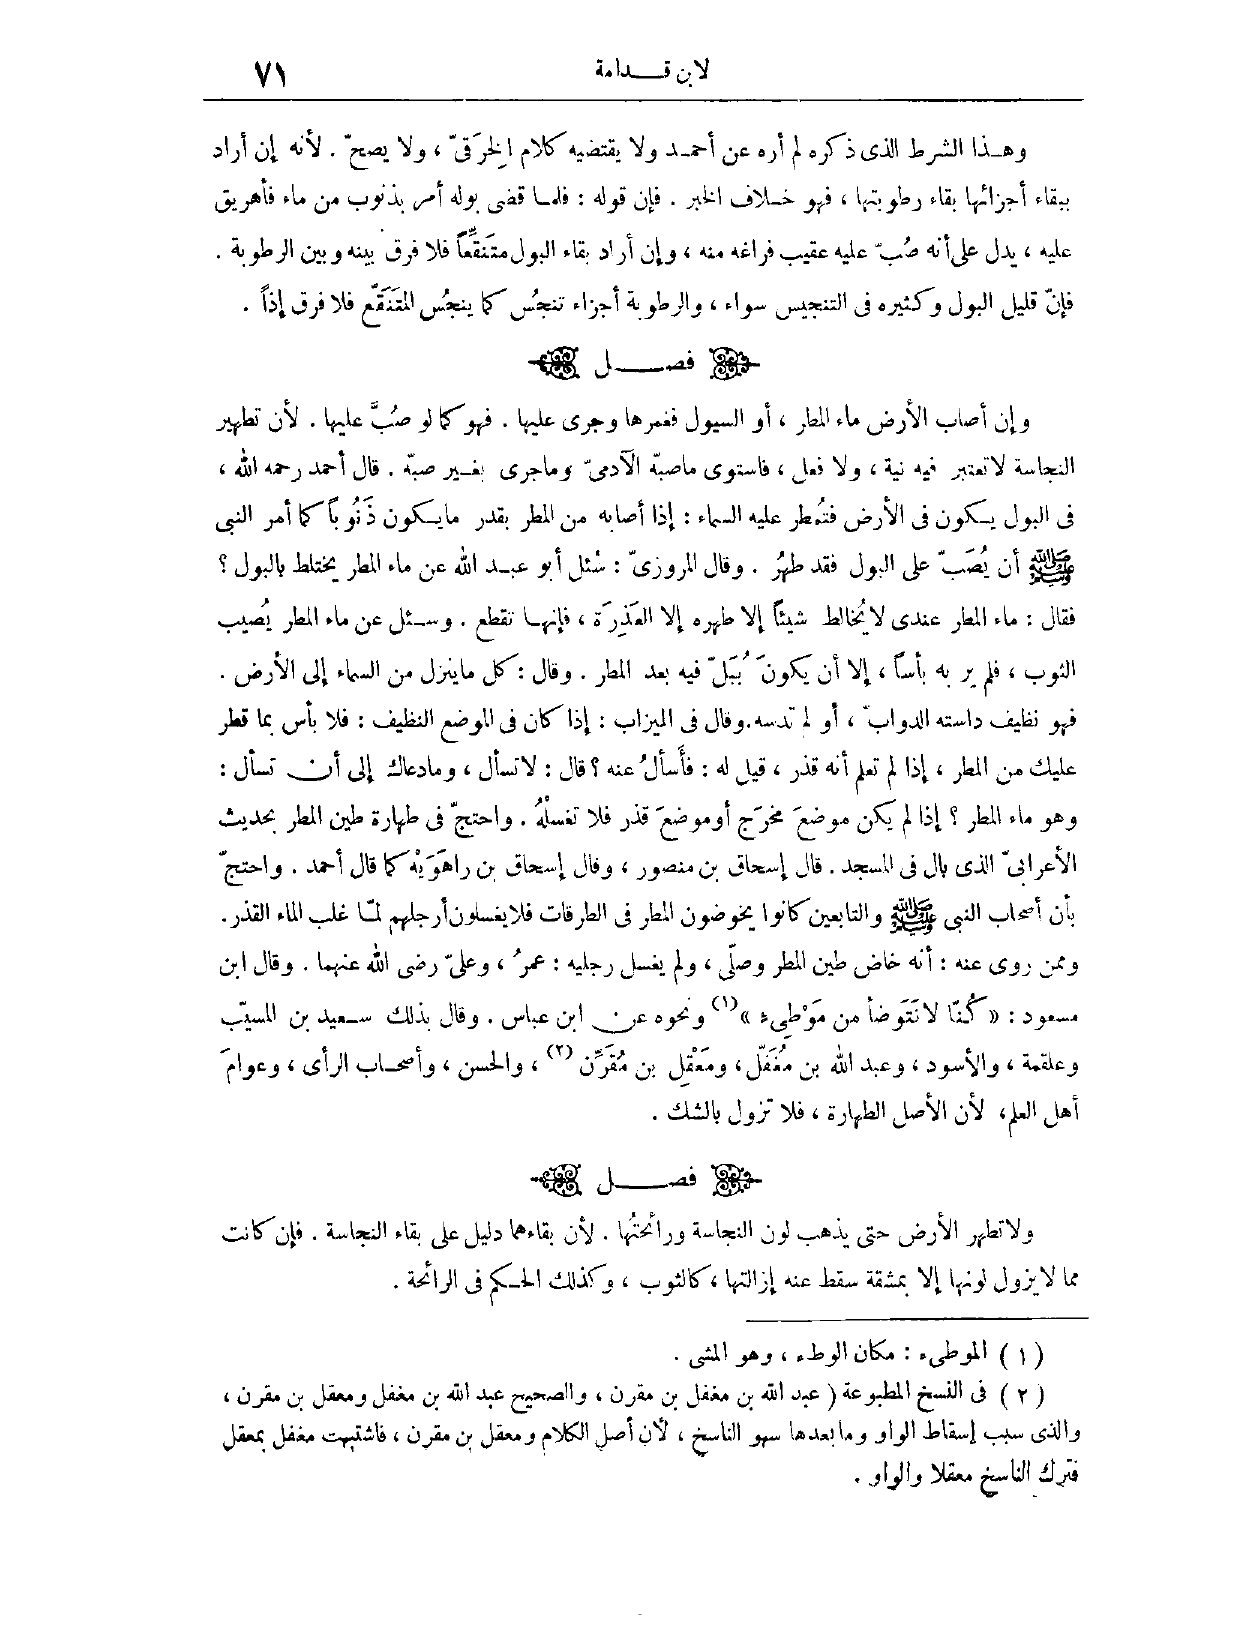 لابن قـــدامة
٧١
وهـذا الشرط الذى ذكره لم أره عن أحمـد ولا يقتضيه كلام الِخرَقىّ ، ولا يصحّ . لأنه إن أراد
ببقاء أجزائها بقاء رطوبتها ، فهو خـلاف الخبر . فإن قوله : فلمـا قضى بوله أمر بذنوب من ماء فأهريق
عليه ، يدل على أنه صُبّ عليه عقيب فراغه منه ، وإن أراد بقاء البول متَنقِّعاً فلا فرق بينه وبين الرطوبة .
فإنّ قليل البول وكثيره فى التنجيس سواء ، والرطوبة أجزاء تنجُس كما ينجُس المُتَنَقِّع فلا فرق إذاً .
فصـــل
وإن أصاب الأرض ماء المطر ، أو السيول فغمرها وجرى عليها . فهو كما لو صُبَّ عليها . لأن تطهير
النجاسة لا تعتبر فيه نية ، ولا فعل ، فاستوى ماصبّه الآدمىّ وماجرى بغـير صبّه . قال أحمد رحمه الله ،
فى البول يـكون فى الأرض فتُمطر عليه السماء : إذا أصابه من المطر بقدر مايـكون ذَنُوباً كما أمر النبى
ﷺ أن يُصَبّ على البول فقد طهُر . وقال المروزىّ : سُئل أبو عبـد الله عن ماء المطر يختلط بالبول ؟
فقال : ماء المطر عندى لا يُخالط شيئاً إلا طهره إلا العَذِرَة ، فإنهـا تقطع . وسـئل عن ماء المطر يُصيب
الثوب ، فلم ير به بأساً ، إلا أن يكونَ يُبَلّ فيه بعد المطر . وقال : كل ماينزل من السماء إلى الأرض .
فهو نظيف داسته الدوابّ ، أو لم تدسه.وقال فى الميزاب : إذا كان فى الموضع النظيف : فلا بأس بما قطر
عليك من المطر ، إذا لم تعلم أنه قذر ، قيل له : فأسألُ عنه ؟ قال : لاتسأل ، ومادعاك إلى أن تسأل :
وهو ماء المطر ؟ إذا لم يكن موضعَ مخرَج أوموضعَ قذر فلا تغسلْهُ . واحتجّ فى طهارة طين المطر بحديث
الأعرابىّ الذى بال فى المسجد . قال إسحاق بن منصور ، وقال إسحاق بن راهَوَيْه كما قال أحمد . واحتجّ
بأن أصحاب النبى ﷺ والتابعين كانوا يخوضون المطر فى الطرقات فلا يغسلون أرجلهم لمّـا غلب الماء القذر .
وممن روى عنه : أنه خاض طين المطر وصلّى ، ولم يغسل رجليه : عمرُ ، وعلىّ رضى الله عنهما . وقال ابن
مسعود : « كُنّا لا نَتَوضأ من مَوْطِىء »(١) ونحوه عن ابن عباس . وقال بذلك سـعيد بن المسيّب
وعلقمة ، والأسود ، وعبد الله بن مُغَفّل ، ومَعْقِل بن مُقَرِّن (٢) ، والحسن ، وأصحـاب الرأى ، وعوامّ
أهل العلم، لأن الأصل الطهارة ، فلا تزول بالشك .
فصـــل
ولاتطهر الأرض حتى يذهب لون النجاسة ورائحتُها . لأن بقاءهما دليل على بقاء النجاسة . فإن كانت
مما لا يزول لونها إلا بمشقة سقط عنه إزالتها ، كالثوب ، وكذلك الحـكم فى الرائحة .
( ١ ) الموطىء : مكان الوطء ، وهو المشى .
( ٢ ) فى النسخ المطبوعة ( عبد الله بن مغفل بن مقرن ، والصحيح عبد الله بن مغفل ومعقل بن مقرن ،
والذى سبب إسقاط الواو ومابعدها سهو الناسخ ، لأن أصل الكلام ومعقل بن مقرن ، فاشتبهت مغفل بمعقل
فترك الناسخ معقلا والواو .